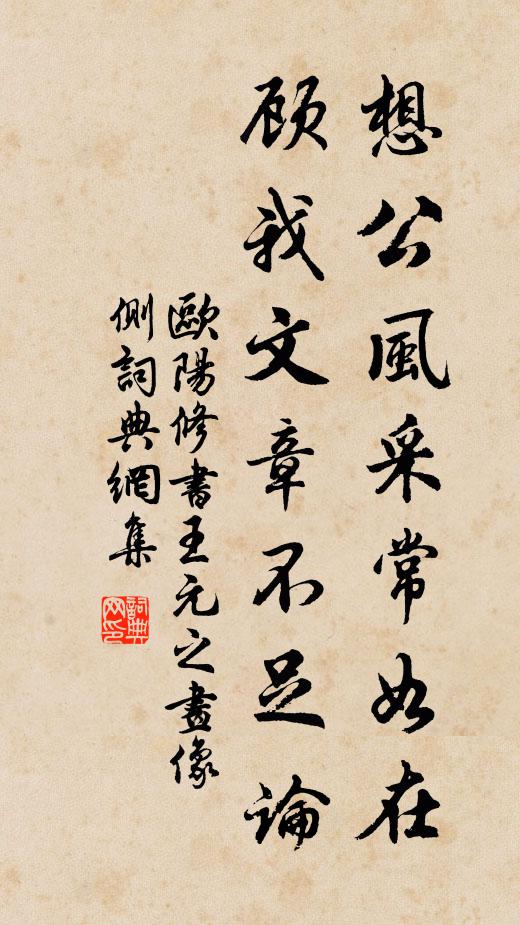 想公風采常如在
顾我文章不足論
歐陽修書王元之畫像
側詞典網集
詞典
网印